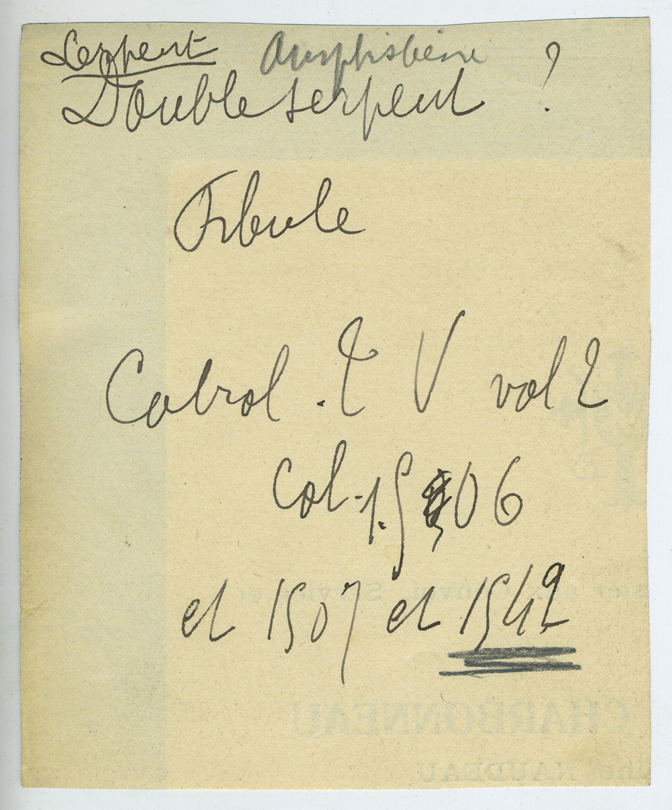 Serpent Amphisbène
Double serpent ?
Fibule
Cabrol . T V vol 2
Col. 1.506
et 1507 et 1542
CHARBONNEAU
NAUDEAU